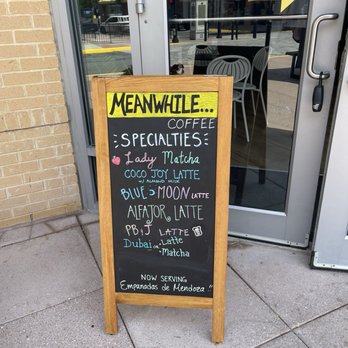 MEANWHILE...
COFFEE
SPECIALTIES
Lady Matcha
COCO JOY LATTE
w/ ALMOND MILK
BLUE MOON LATTE
ALFAJOR LATTE
PB&J LATTE
Dubai Latte
Matcha
NOW SERVING
"Empanadas de Mendoza"